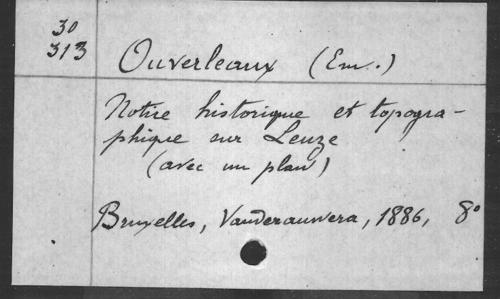 30
313
Ouverleaux (Em.)
Notice historique et topogra-
phique sur Leuze
(avec un plan)
Bruxelles, Vanderauwera, 1886, 8°